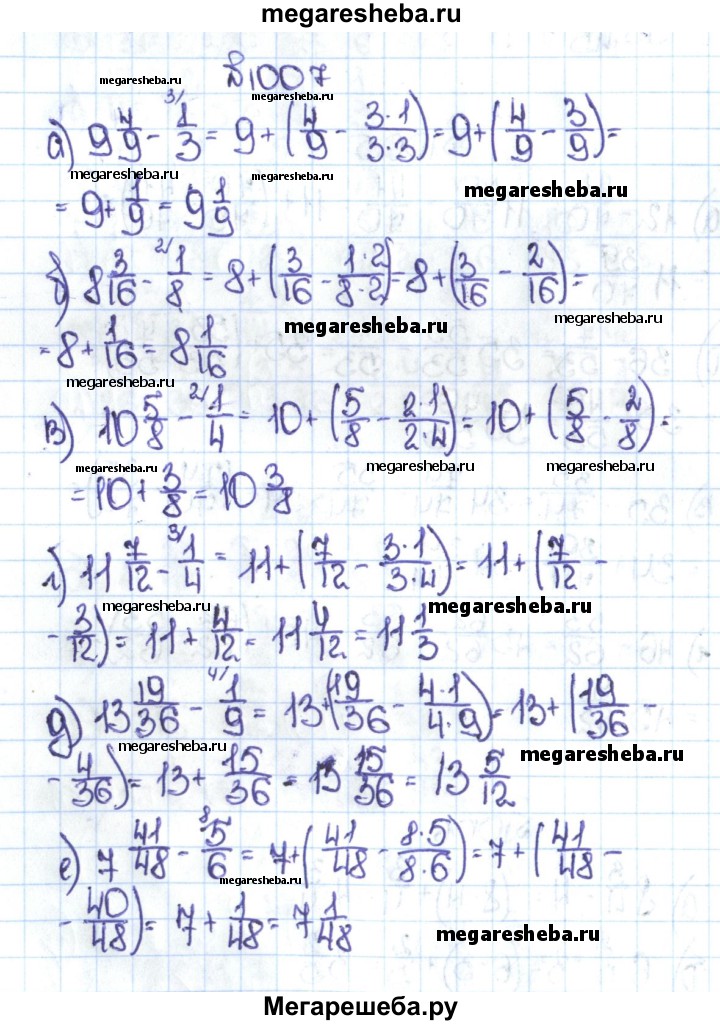 megaresheba.ru
№1007
megaresheba.ru megaresheba.ru
а) 9 4/9 - ³⁾1/3 = 9 + (4/9 - 3·1/3·3) = 9 + (4/9 - 3/9) =
megaresheba.ru megaresheba.ru megaresheba.ru
= 9 + 1/9 = 9 1/9
б) 8 3/16 - ²⁾1/8 = 8 + (3/16 - 1·2/8·2) = 8 + (3/16 - 2/16) =
megaresheba.ru megaresheba.ru
= 8 + 1/16 = 8 1/16
megaresheba.ru megaresheba.ru
в) 10 5/8 - ²⁾1/4 = 10 + (5/8 - 2·1/2·4) = 10 + (5/8 - 2/8) =
megaresheba.ru megaresheba.ru megaresheba.ru
= 10 + 3/8 = 10 3/8
г) 11 7/12 - ³⁾1/4 = 11 + (7/12 - 3·1/3·4) = 11 + (7/12 -
megaresheba.ru megaresheba.ru
- 3/12) = 11 + 4/12 = 11 4/12 = 11 1/3
д) 13 19/36 - ⁴⁾1/9 = 13 + (19/36 - 4·1/4·9) = 13 + (19/36 -
megaresheba.ru megaresheba.ru
- 4/36) = 13 + 15/36 = 13 15/36 = 13 5/12
е) 7 41/48 - ⁸⁾5/6 = 7 + (41/48 - 8·5/8·6) = 7 + (41/48 -
megaresheba.ru
- 40/48) = 7 + 1/48 = 7 1/48
megaresheba.ru
Мегарешеба.ру